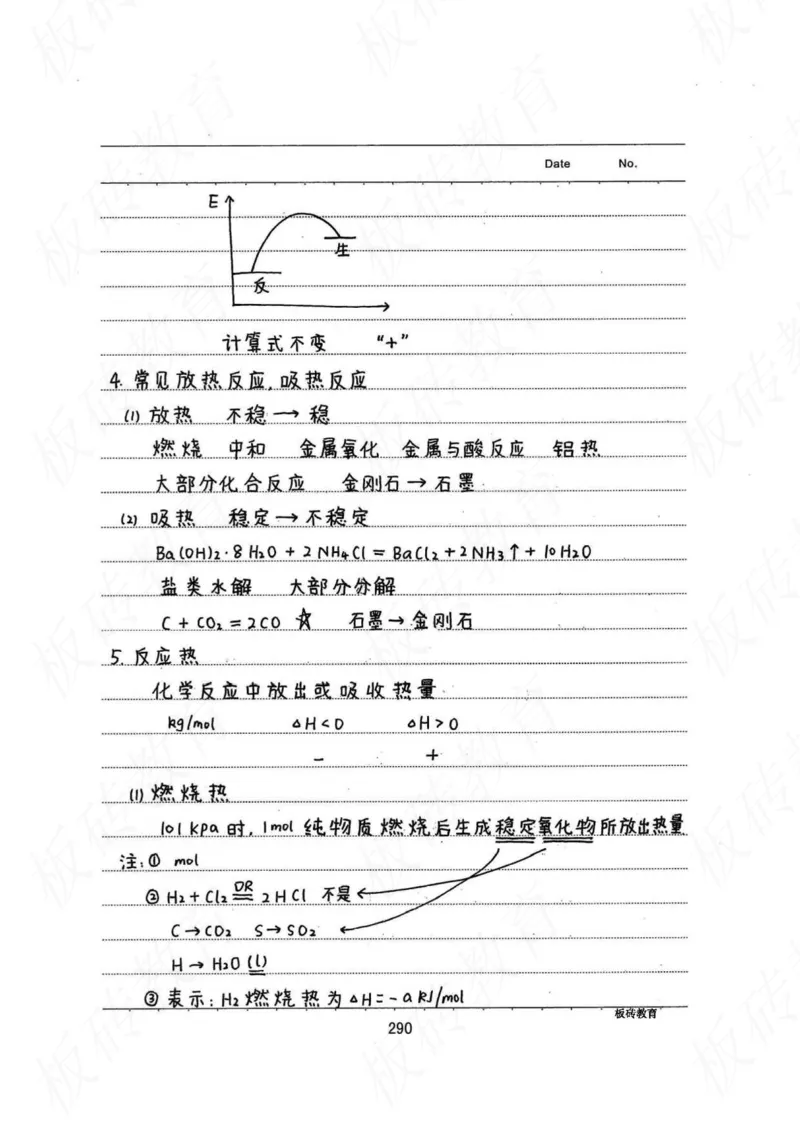 Date No.
E
生
反
计算式不变 “+”
4. 常见放热反应,吸热反应
(1) 放热 不稳 → 稳
燃烧 中和 金属氧化 金属与酸反应 铝热
大部分化合反应 金刚石 → 石墨
(2) 吸热 稳定 → 不稳定
Ba(OH)₂·8H₂O + 2NH₄Cl = BaCl₂ + 2NH₃↑ + 10H₂O
盐类水解 大部分分解
C + CO₂ = 2CO ☆ 石墨 → 金刚石
5. 反应热
化学反应中放出或吸收热量
kg/mol △H<0 △H>0
- +
(1) 燃烧热
101 kPa 时, 1mol 纯物质燃烧后生成稳定氧化物所放出热量
注: ① mol
② H₂ + Cl₂ 点燃 2HCl 不是
C → CO₂ S → SO₂
H → H₂O (l)
③ 表示: H₂燃烧热为 △H = -a kJ/mol
板砖教育
290